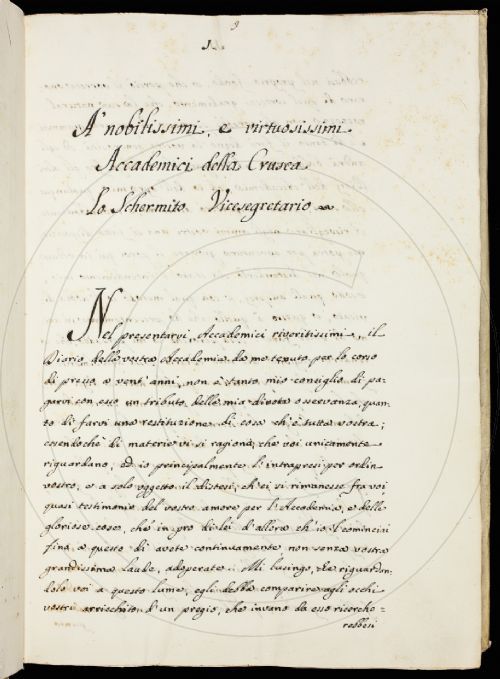 9
1.
A' nobilissimi, e virtuosissimi
Accademici della Crusca
Lo Schermito Vicesegretario
Nel presentarvi, Accademici riveritissimi, il
Diario della vostra Accademia da me tenuto per lo corso
di presso a vent' anni, non è tanto mio consiglio di pa-
garvi con esso un tributo della mia divota osservanza, quan-
to di farvi una restituzione di cosa ch' è tutta vostra;
essendochè di materie vi si ragiona, che voi unicamente
riguardano, ed io principalmente l' intrapresi per ordin
vostro, e a solo oggetto il distesi, ch' ei si rimanesse fra voi
quasi testimonio del vostro amore per l' Accademia, e delle
gloriose cose, che in pro di lei d' allora ch' io l' cominciai
fino a questo dì avete continuamente non senza vostra
grandissima laude, adoperate. Mi lusingo, che riguardan-
dolo voi a questo lume, egli debba comparire agli occhi
vostri arricchito d' un pregio, che invano da esso ricerche-
rebbesi